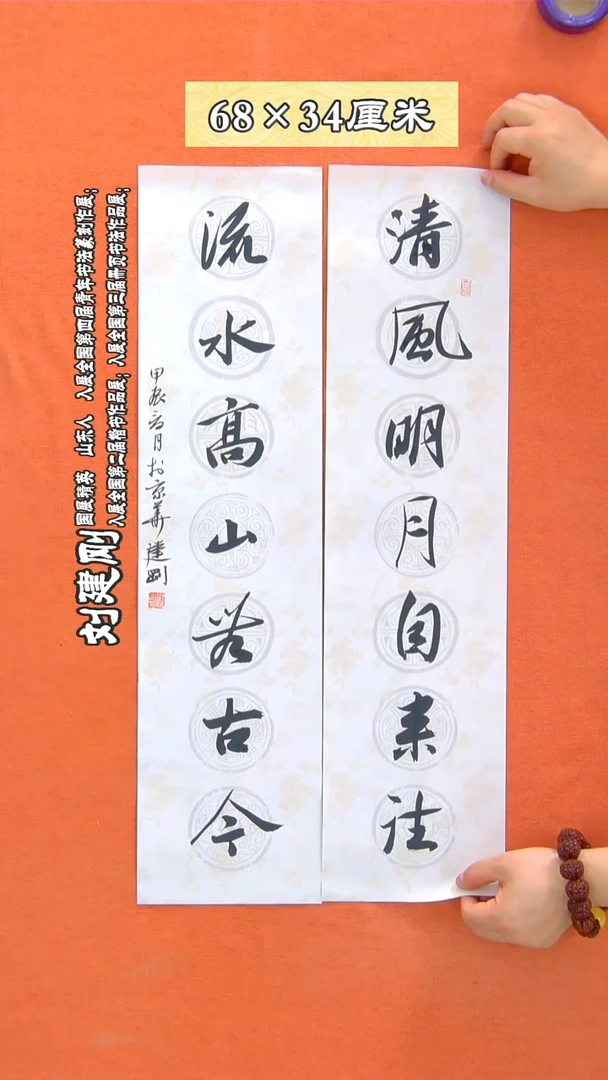 68×34厘米
清風明月自来往
流水高山無古今
甲辰 月於京華建刚
刘建刚
国展精英 山东人 入展全国第四届青年书法篆刻作展；
入展全国第二届楷书作品展；入展全国第三届册页书法作品展；